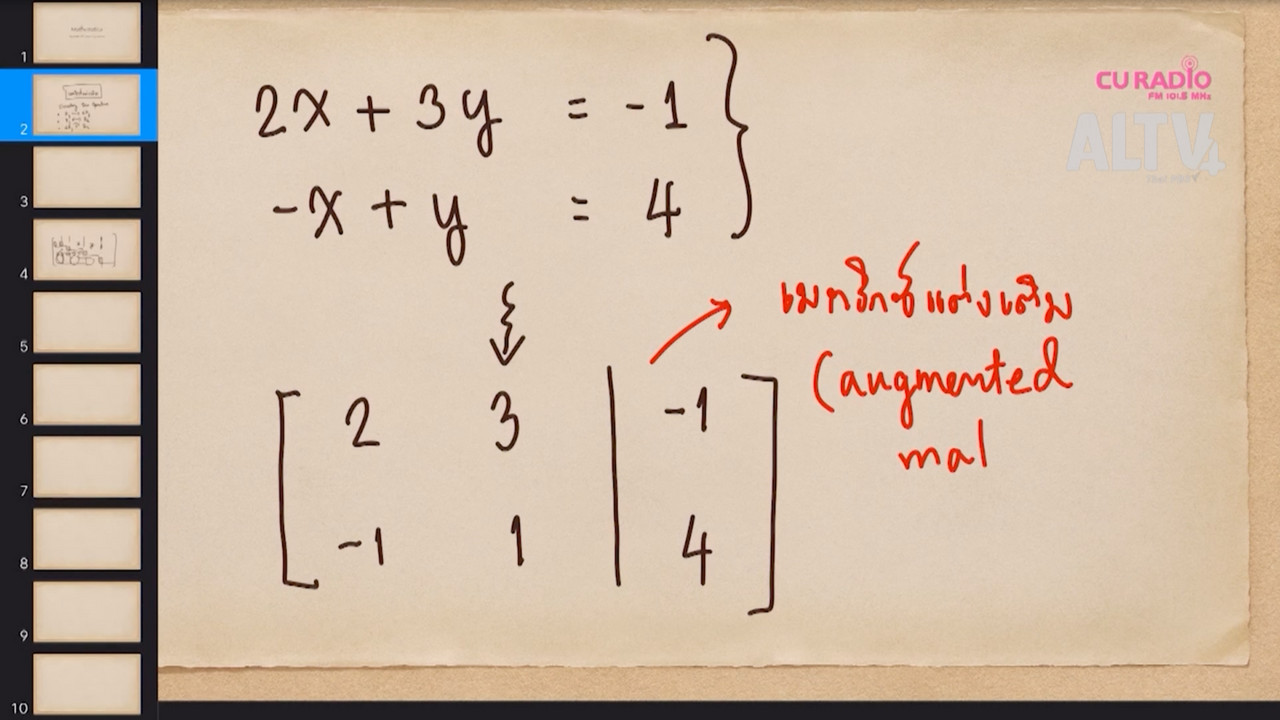 CU RADIO
FM 101.5 MHz
ALTV 4
2x + 3y = -1
-x + y = 4
เมทริกซ์แต่งเติม
(augmented
mat
2 3 -1
-1 1 4
1
2
3
4
5
6
7
8
9
10